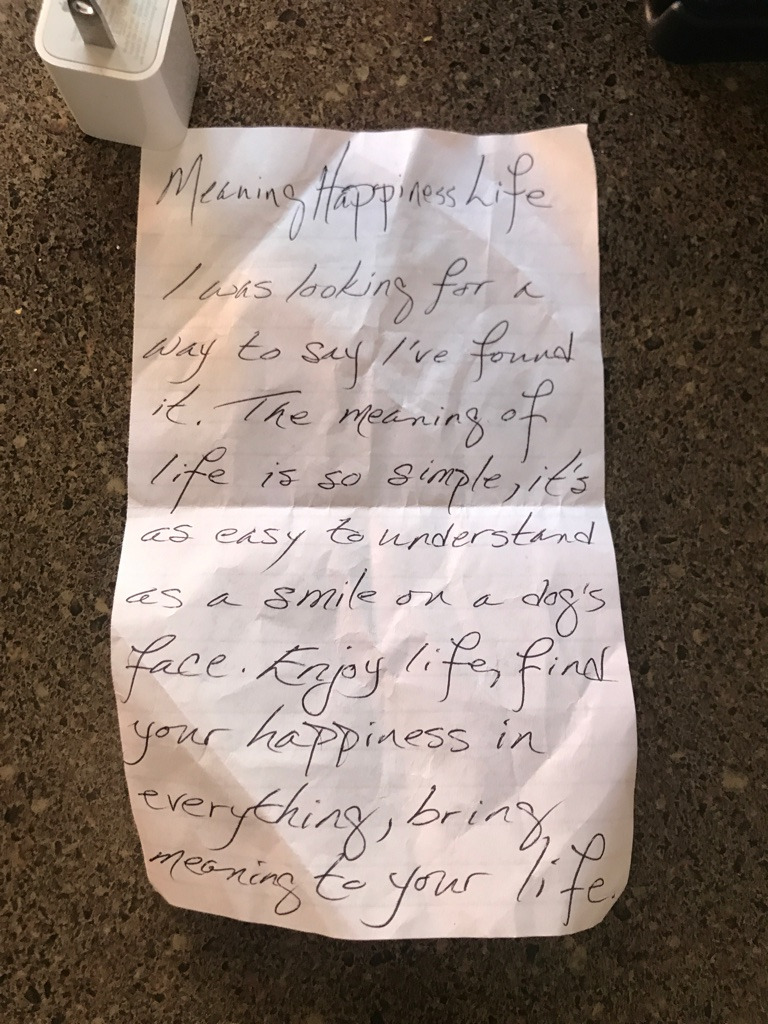 Meaning Happiness Life
I was looking for a
way to say I've found
it. The meaning of
life is so simple, it's
as easy to understand
as a smile on a dog's
face. Enjoy life, find
your happiness in
everything, bring
meaning to your life.